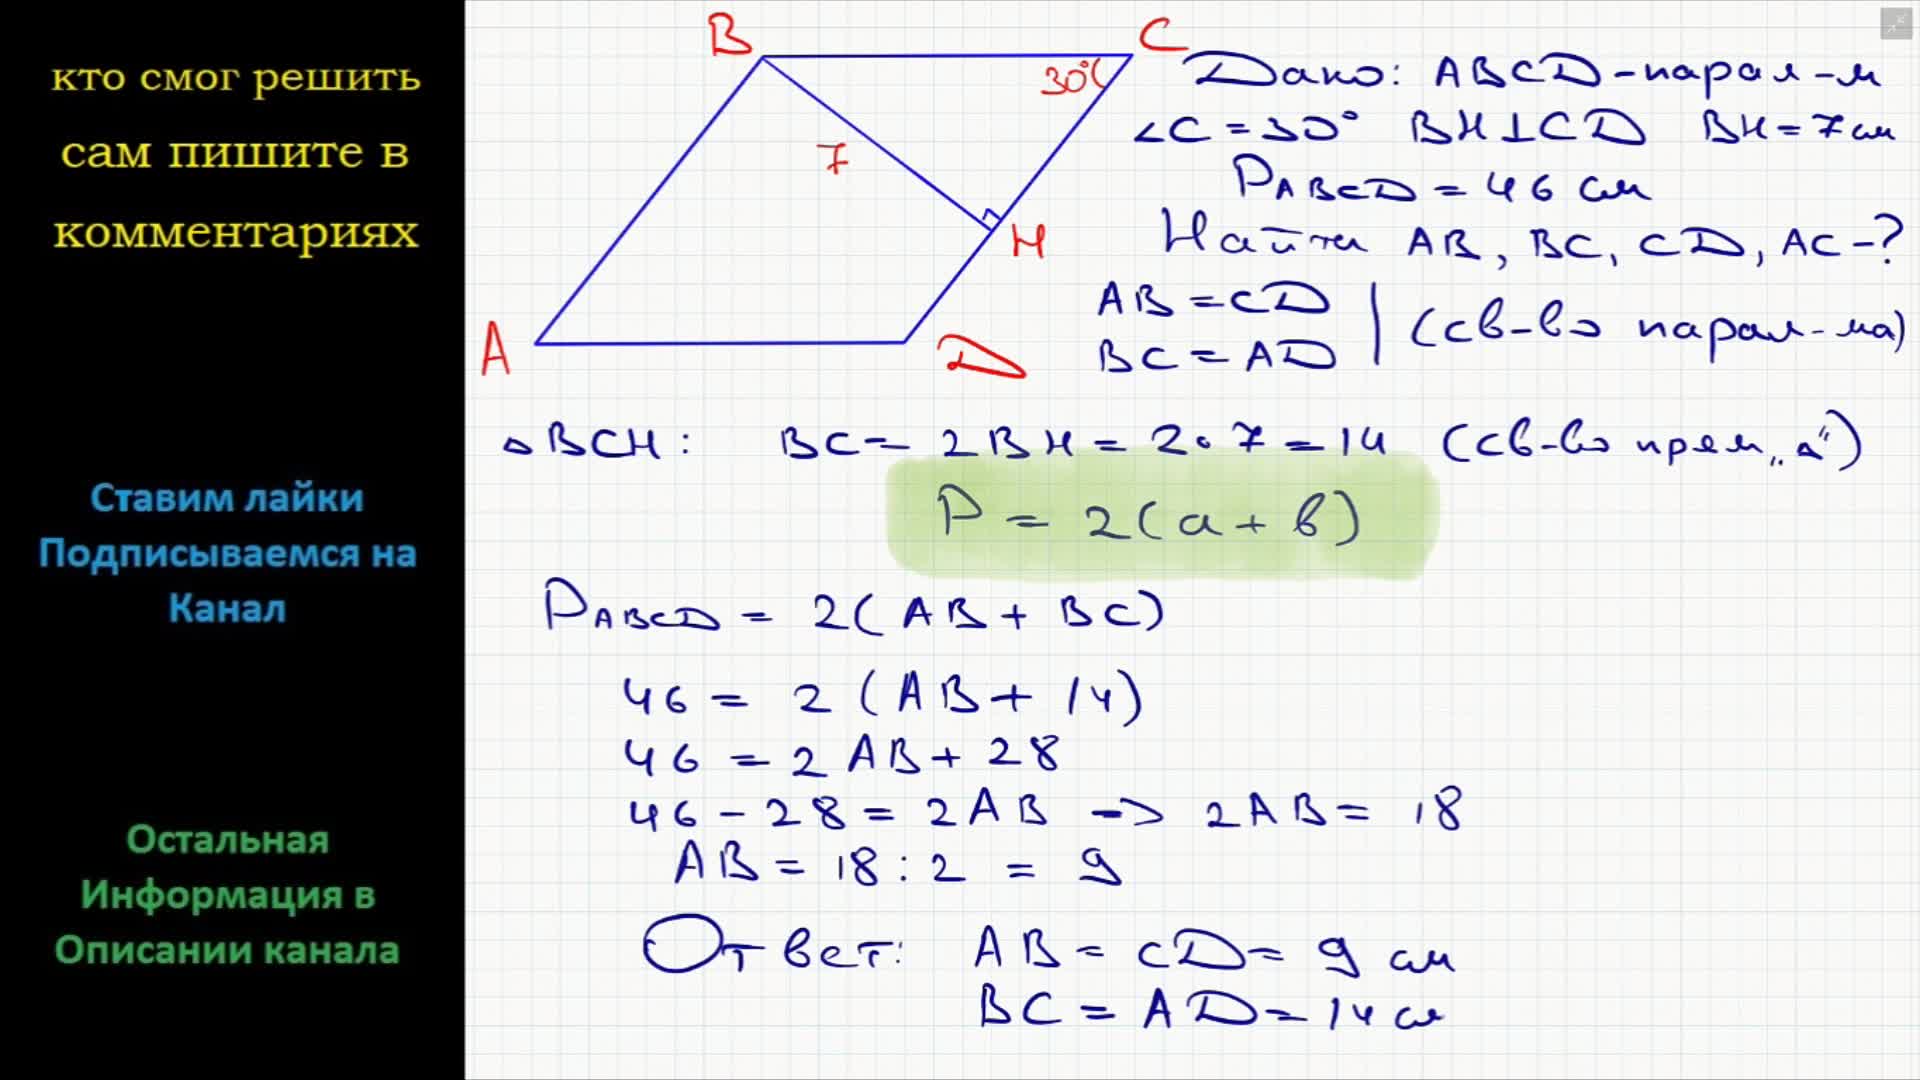 кто смог решить
сам пишите в
комментариях
Ставим лайки
Подписываемся на
Канал
Остальная
Информация в
Описании канала
B
C
30°
7
H
A
D
Дано: ABCD-парал-м
∠C = 30° BH⊥CD BH = 7см
P ABCD = 46 см
Найти AB, BC, CD, AC-?
AB = CD
BC = AD | (св-во парал-ма)
△BCH: BC = 2BH = 2·7 = 14 (св-во прям „△“)
P = 2(a + b)
P ABCD = 2(AB + BC)
46 = 2(AB + 14)
46 = 2AB + 28
46 - 28 = 2AB -> 2AB = 18
AB = 18 : 2 = 9
Ответ: AB = CD = 9 см
BC = AD = 14 см